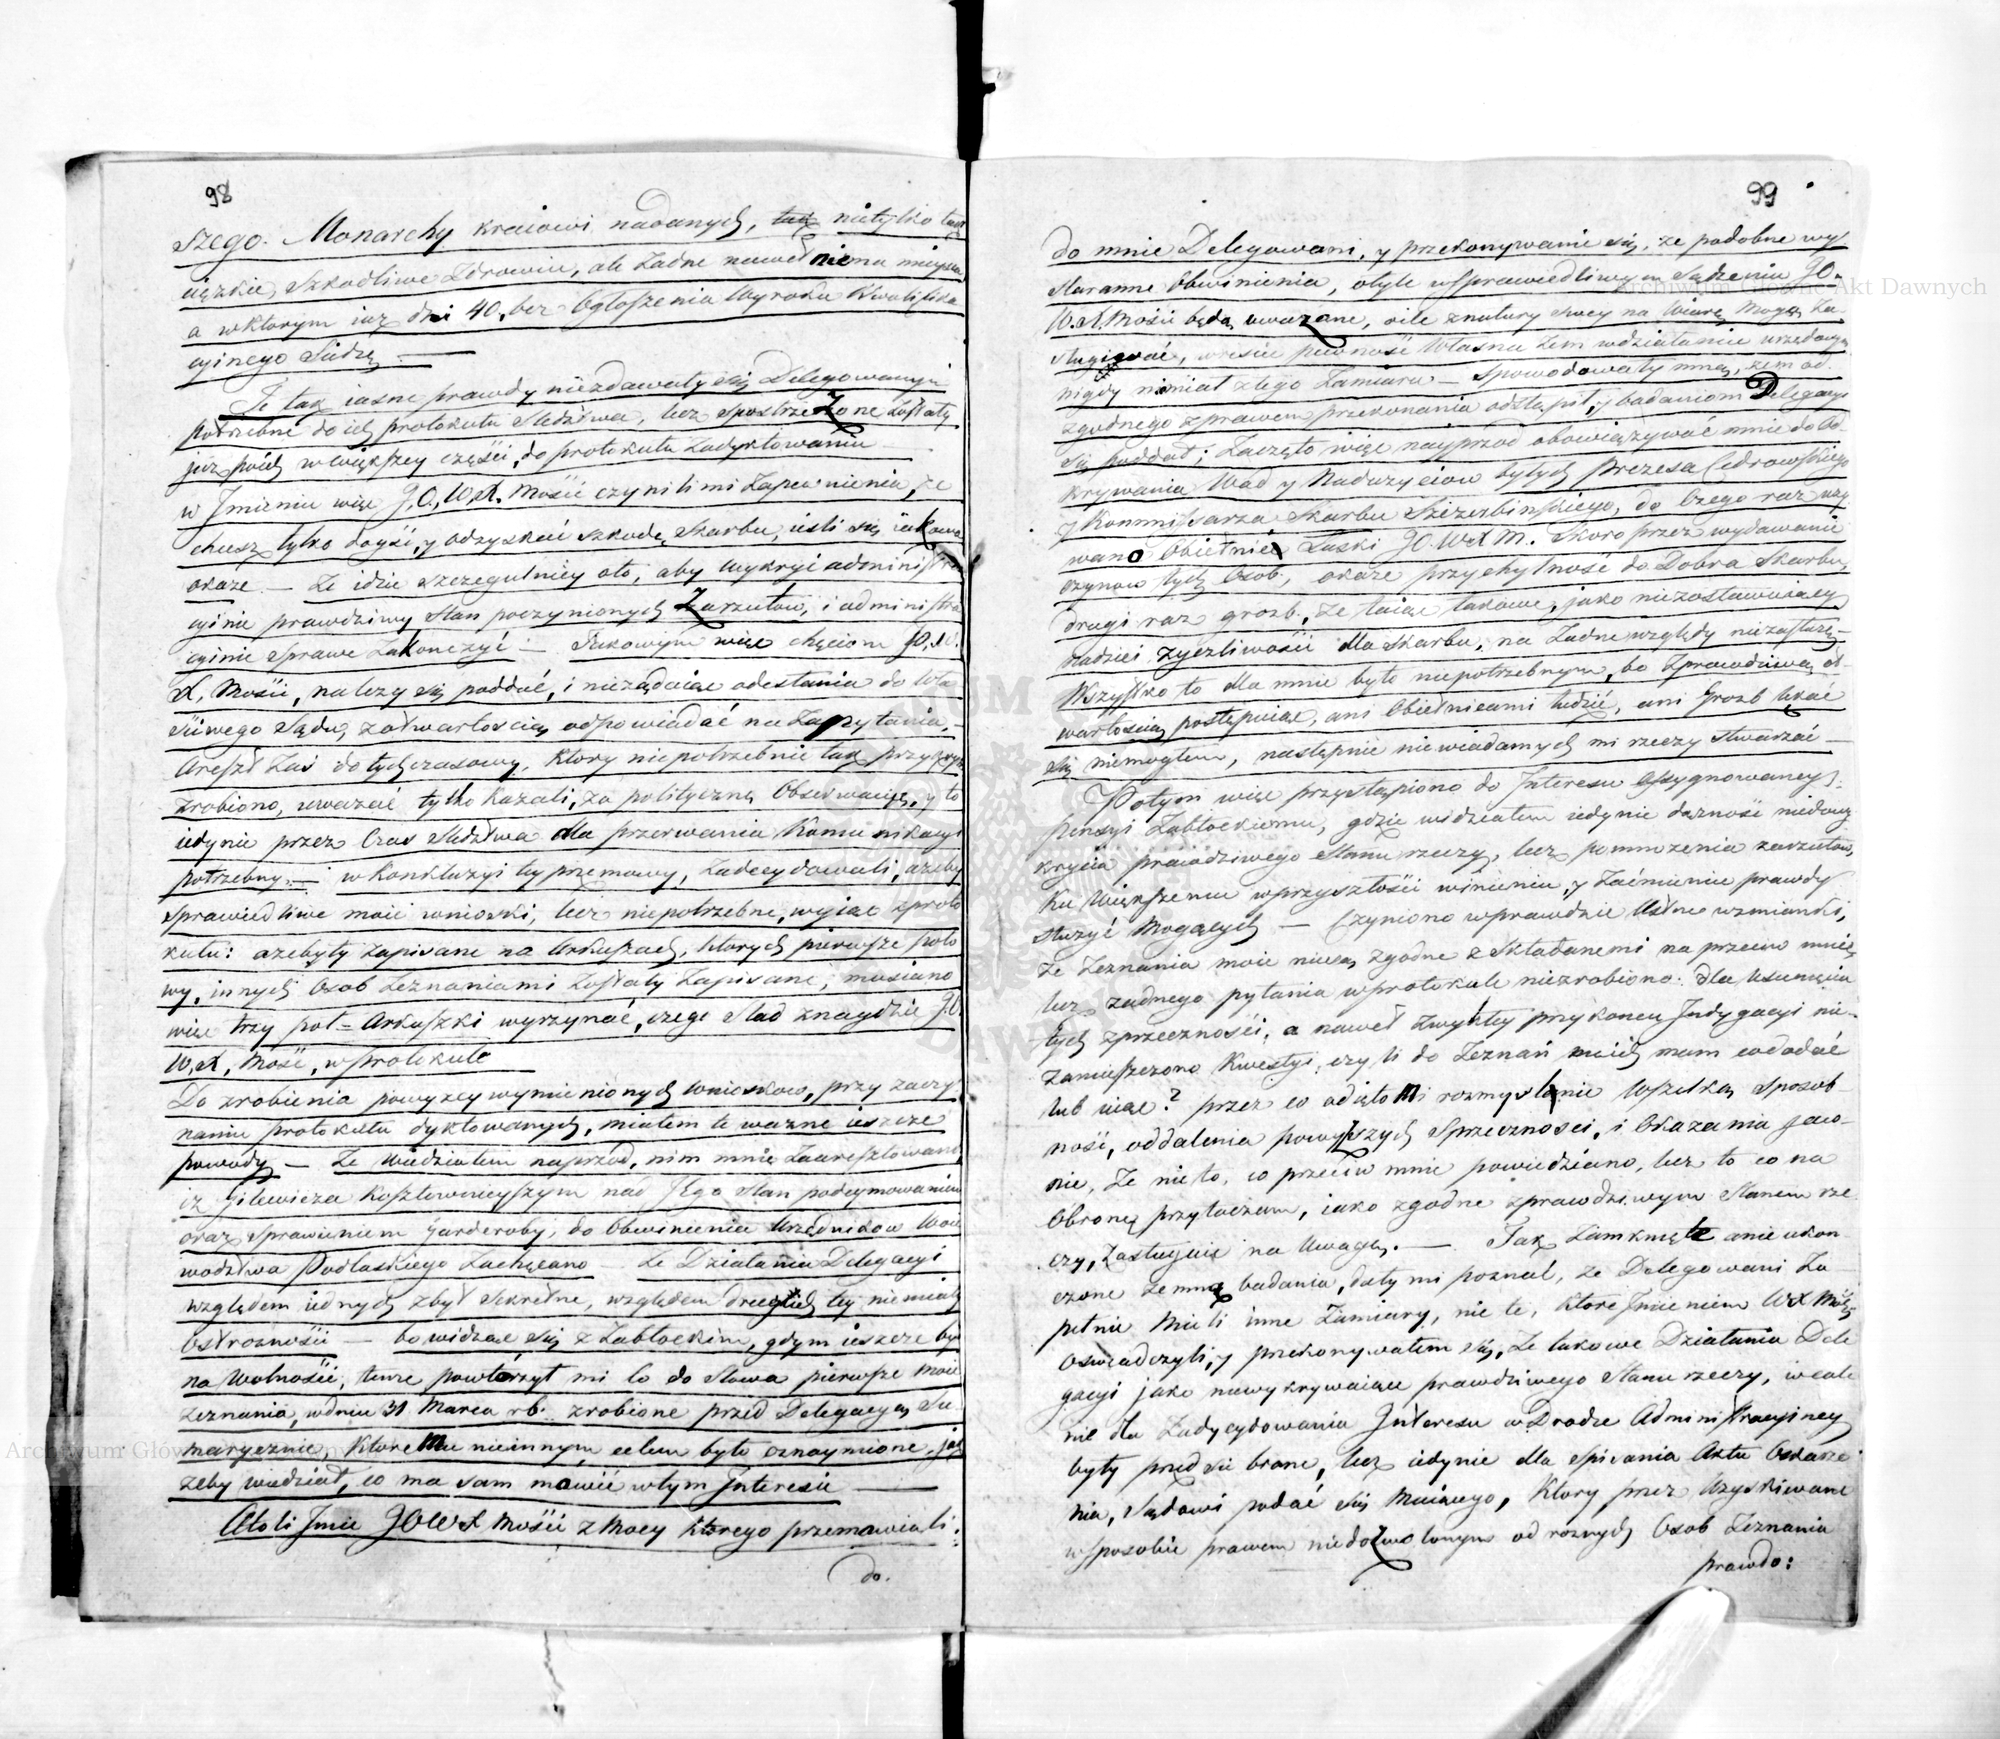 98
szego Monarchy kraiowi nadanych, tak nietylko tak
ciężkie, szkodliwe Zdrowiu, ale Żadne nawet niema mieysca
a wktorym iuz dni 40, bez Ogłoszenia Wyroku Kwalifika
cyinego Siedzę. —
Że tak iasne prawdy niezdawały się Delegowanym
potrzebne do ich protokułu Sledztwa, lecz spostrzeżone zostały
już poich większey części, do protokułu zadyktowaniu —
w Jmieniu więc J.O.W.X. Mości czynili mi Zapewnienia, że
chcesz tylko doyść, y odzyskać szkodę Skarbu, iesli się iakowa
okaże — Że idzie szczegulniey oto, aby wykryć administra
cyinie prawdziwy Stan poczynionych Zarzutow, i administra
cyinie Sprawę zakończyć — Takowym więc chęciom J.O.W.
X. Mości, należy się poddać, i nieżądaiąc odesłania do Wła
ściwego Sądu, zotwartością odpowiadać na Zapytania, —
Areszt Zaś dotychczasowy, ktory niepotrzebnie tak przykrym
zrobiono, uważać tylko kazali, za polityczną Obserwacyą, y to
iedynie przez Czas Sledztwa dla przerwania Komunikacyi
potrzebny. — w Konkluzyi tey przemowy, Zadecydowali, ażeby
sprawiedliwe moie wnioski, lecz niepotrzebne, wyiąć zproto
kułu: azebyły zapisane na Arkuszach, ktorych pierwsze poło
wy, innych Osob Zeznaniami Zostały Zapisane, musiano
więc trzy poł=Arkuszki wyrzynać, czego Slad znaydzie J.O.
W.X. Mość, wprotokule
Do zrobienia powyzey wymienionych Wnioskow, przy zaczy
naniu protokułu dyktowanych, miałem te wazne ieszcze
powody — Że Widziałem naprzod, nim mnie Zaaresztowano,
iż Gilewicza Kosztownieyszym nad Jego Stan podeymowaniem
oraz sprawieniem Garderoby, do Obwinienia Urzędnikow Woie
wodztwa Podlaskiego Zachęcano — Że Działania Delegacyi
względem iednych zbyt Sekretne, względem drugich tey niemiały
Ostrozności — bo widząc się z Zabłockim, gdym ieszcze był
na Wolności, tenze powtórzył mi Co do Słowa pierwsze moie
zeznania, wdniu 31 Marca r.b. zrobione przed Delegacyą Su
marycznie, Które Mu nieinnym celem było oznaymione, jak
zeby wiedział, co ma sam mówić wtym Jnteresie —
Atoli Jmie JOWX Mości z Mocy ktorego przemawiali:
do.
99
do mnie Delegowani, y przekonywanie się, ze podobne wy
staranne Obwinienia, otyle wsprawiedliwym Sądzeniu JO.
W.X. Mości będą uwazane, oile znatury swey na Wiarę Mogą Za
sługiwać, wreście pewność Własna Żem wdziałaniu urzędowym
nigdy niemiał złego Zamiaru — spowodowały mnie, żem od
zgodnego zprawem przekonania odstąpił, y badaniom Delegacyi
się poddał; Zaczęto więc nayprzod obowiązywać mnie do Od
krywania Wad y Naduzyciow byłych Prezesa Cedrowskiego
y Kommissarza Skarbu Szczerbińskiego, do Czego raz uzy
wano Obietnic Łaski JOWXM. Skoro przez wydawanie
czynow tych Osob, okaże przychylność do Dobra Skarbu,
drugi raz grozb, że taiąc takowe, jako niezostawuiący
nadziei życzliwości dla Skarbu, na Żadne względy niezasłużę —
Wszystko to dla mnie było niepotrzebnym, bo Zprawdziwą ot
wartością postępuiąc, ani Obietnicami łudzić, ani Grozb lękać
się niemogłem, następnie niewiadomych mi rzeczy stwarzać —
Potym więc przystąpiono do Jnteresu Assygnowaney
pensyi Zabłockiemu, gdzie widziałem iedynie dążność niedowy
krycia prawdziwego Stanu rzeczy, lecz pomnożenia zarzutow,
Ku Większemu wprzyszłości winieniu, y Zaćmieniu prawdy
służyć Mogących — Czyniono wprawdzie Ustne wzmianki,
że Zeznania moie niesą zgodne z Składanemi na przeciw mnie,
lecz żadnego pytania wprotokule niezrobiono: dla Usunięcia
tych zprzeczności, a nawet zwykłey przykońcu Jndygacyi nie-
zamieszczono Kwestyi, czyli do Zeznań moich mam co dodać
lub uiąć? przez co odięto mi rozmyslnie Wszelką Sposob
ność, oddalenia powyższych Sprzeczności, i Okazania Jaw-
nie, Że nie to, co przeciw mnie powiedziano, lecz to co na
Obronę przytaczam, iako zgodne zprawdziwym Stanem rze
czy, Zasługuie na Uwagę. — Tak Zamknięte anieukoń-
czone zemną badania, dały mi poznać, że Delegowani Zu-
pełnie Mieli inne Zamiary, nie te, które Jmieniem WX Mości
Oświadczyli, y przekonywałem się, Że takowe Działania Dele
gacyi jako niewykrywaiące prawdziwego Stanu rzeczy, wcale
nie dla Zadecydowania Jnteresu w Drodze Administracyiney
były przedsiebrane, lecz iedynie dla spisania Aktu Oskarze
nia, Sądowi podać się Maiącego, Który przez Uzyskiwane
wsposobie prawem niedozwolonym od roznych Osob Zeznania
prawdo: